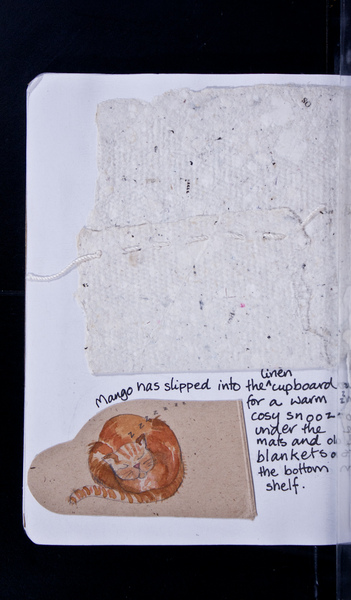 linen
Mango has slipped into the ^ cupboard
for a warm
cosy snooz
under the
mats and
blankets
the bottom
shelf.
z z z z z z z